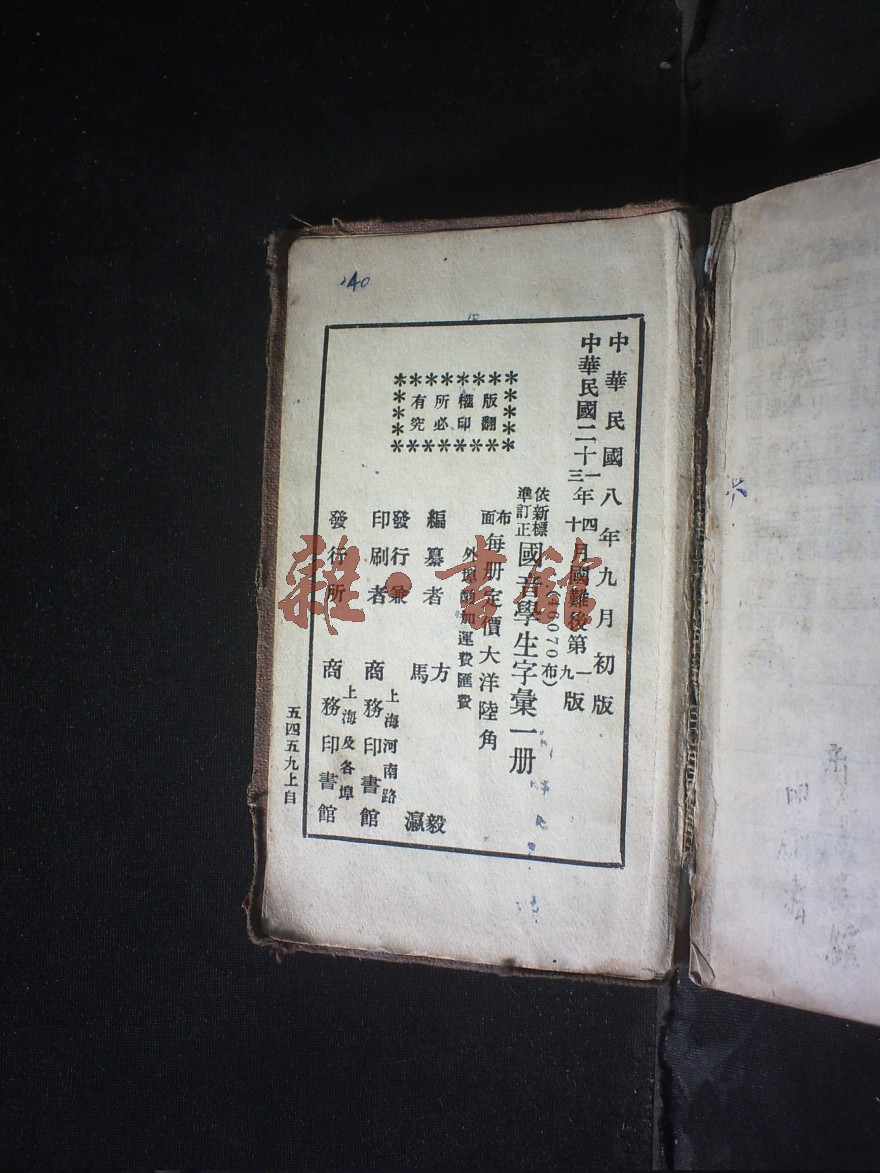 中華民國八年九月初版
中華民國二十一年四月國難後第一版
三 十 九
依新標準訂正
國音學生字彙一册
(46070布)
布面
每册定價大洋陸角
外埠酌加運費匯費
版權所有
翻印必究
編纂者 方毅
馬瀛
發行兼印刷者
上海河南路
商務印書館
發行所
上海及各埠
商務印書館
五四五九上自
240
雜·書館
六